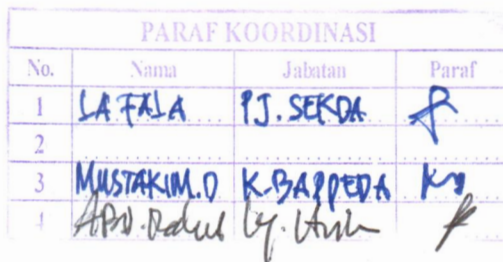 PARAF KOORDINASI
No. Nama Jabatan Paraf
1 LA FALA PJ. SEKDA
2
3 MUSTAKIM.D K.BAPPEDA
4